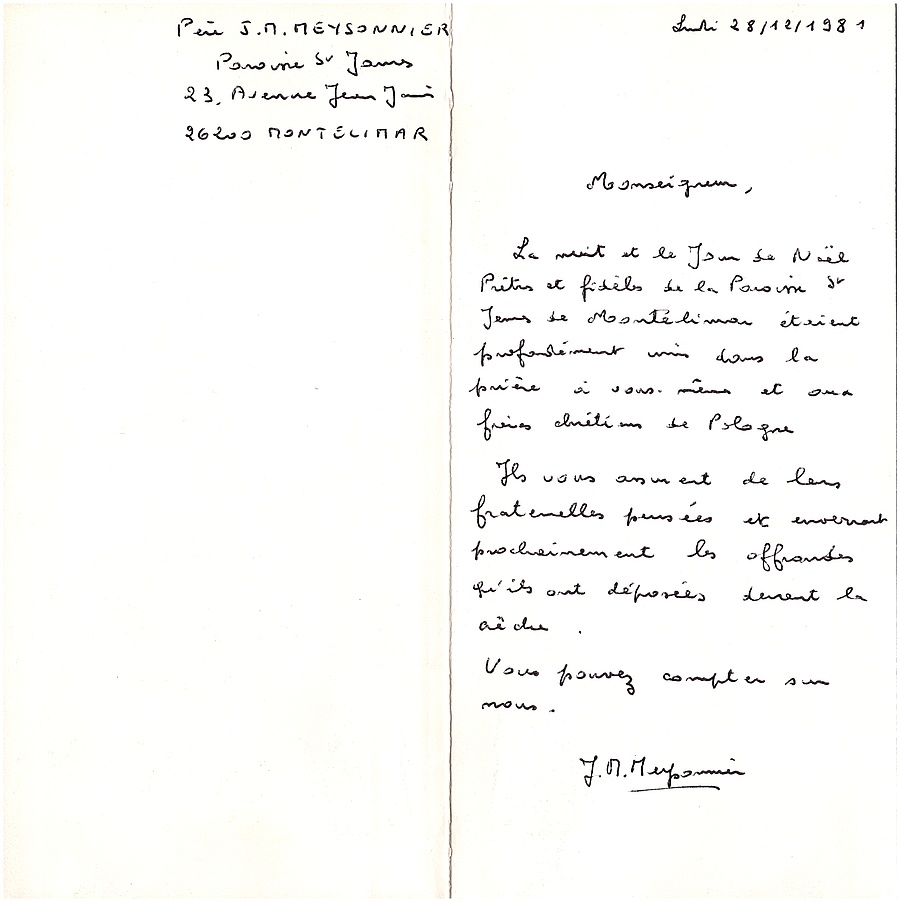 Père J.M. MEYSONNIER
Paroisse St James
23, Avenue Jean Jaurès
26200 MONTELIMAR
Lundi 28/12/1981
Monseigneur,
La nuit et le Jour de Noël
Prêtres et fidèles de la Paroisse St
James de Montélimar étaient
profondément unis dans la
prière à vous-même et aux
frères chrétiens de Pologne
Ils vous assurent de leurs
fraternelles pensées et enverront
prochainement les offrandes
qu'ils ont déposées devant la
crèche.
Vous pouvez compter sur
nous.
J.M. Meysonnier